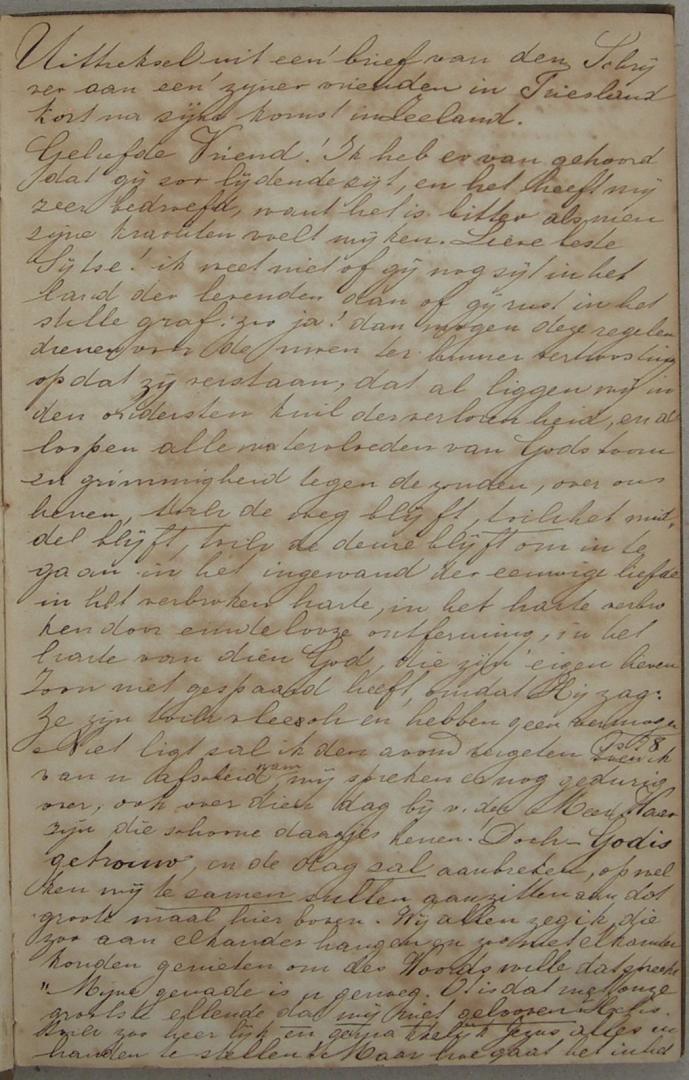 Uittreksel uit een' brief van den Schrij
ver aan een' zijner vrienden in Friesland
kort na zijne komst in Zeeland.
Geliefde Vriend! Ik heb er van gehoord
dat gij zoo lijdende zijt, en het heeft mij
zeer bedroefd, want het is bitter als men
zijne krachten voelt wijken. Lieve beste
Sytse! ik weet niet of gij nog zijt in het
land der levenden dan of gij rust in het
stille graf: zoo ja! dan mogen deze regelen
dienen voor de uwen ter hunner vertroosting
opdat zij verstaan, dat al liggen wij in
den ondersten kuil der verlorenheid, en al
loopen alle watervloeden van Gods toorn
en grimmigheid tegen de zonden, over ons
henen, toch de weg blijft, toch het mid,
del blijft, toch de deure blijft om in te
gaan in het ingewand der eeuwige liefde
in het verbroken harte, in het harte verbro
ken door eindelooze ontferming, in het
harte van dien God, die zijn' eigen lieven
Zoon niet gespaard heeft, omdat Hij zag:
Ze zijn toch vleesch en hebben geen vermogen
Niet ligt sal ik den avond vergeten toen ik
van u afscheid nam wij spreken er nog gedurig
over, ook over dien dag bij v. der Meer, Waar
zijn die schoone daagjes henen! Doch - God is
getrouw, en de dag sal aanbreken, op wel
ken wij te samen sullen aanzitten aan dat
groote maal hier boven. Wij allen zeg ik, die
zoo aan elkander hangen en zoo met elkander
konden genieten om des Woords wille dat spreekt
"Mijne genade is u genoeg. 't Is dat onze
grootste ellende dat wij niet gelooven
zoo heer lijk en Jezus alles in
handen te stellen Maar hoe gaat het in het